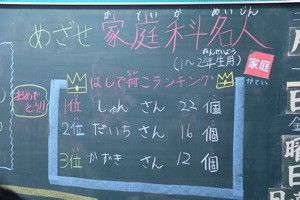 かていかめいじん
めざせ 家庭科名人
(1〜2年生用)
ねんせいよう
家庭
かてい
はしで何こランキング
おめでとう!!
1位 しゅん さん 22個
2位 だいち さん 16個
3位 かずき さん 12個
金
曜
日